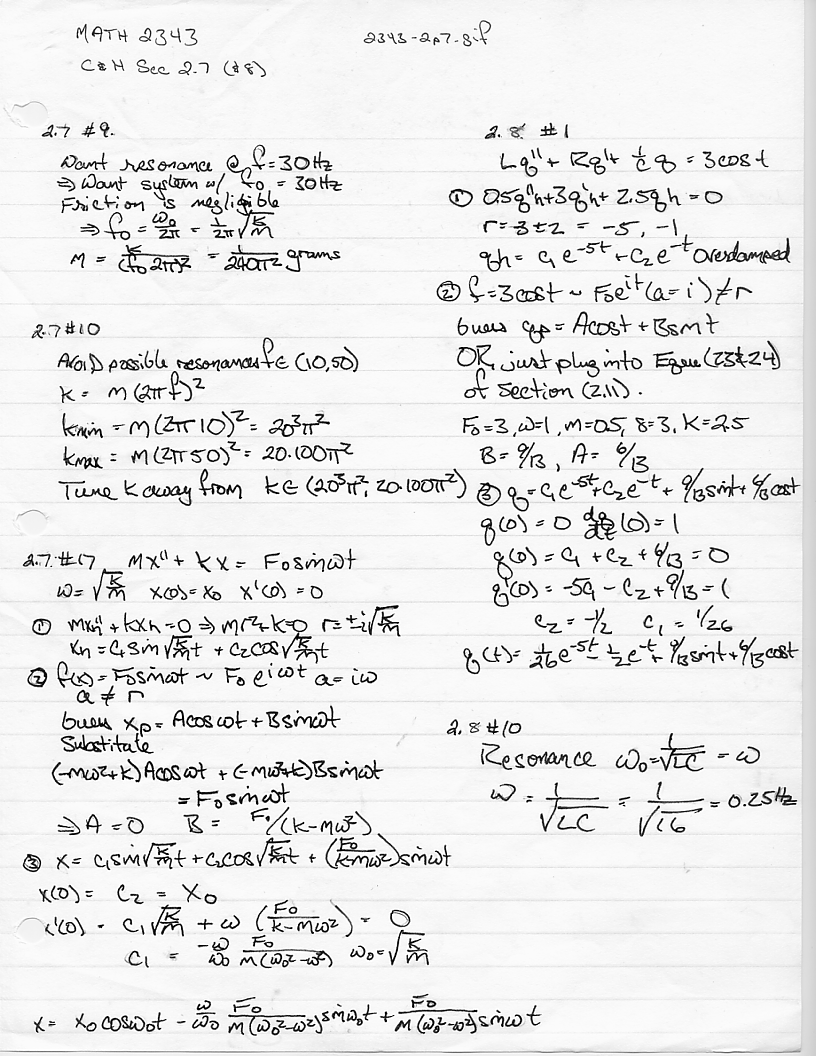 MATH 2343
2343-2p7-8if
C&H Sec 2.7 (&8)
2.7 #9.
Want resonance @ f=30Hz
⇒ Want system w/ f₀ = 30Hz
Friction is negligible
⇒ f₀ = ω₀/2π = 1/2π √(k/m)
M = k/(f₀2π)² = 1/240π² grams
2.7#10
Avoid possible resonances f∈(10,50)
K = m(2πf)²
kmin = m(2π10)² = 20³π²
kmax = m(2π50)² = 20·100π²
Tune K away from k∈(20³π², 20·100π²)
2.7.#17 Mx'' + kx = F₀sinωt
ω=√(k/m) x(0)=x₀ x'(0)=0
① mxₕ''+kxₕ=0 ⇒ mr²+k=0 r=±i√(k/m)
xₕ=c₁sin√(k/m)t + c₂cos√(k/m)t
② f(x)=F₀sinωt ~ F₀e^(iωt) a=iω
a ≠ r
Guess xp= Acosωt+Bsinωt
Substitute
(-mω²+k)Acosωt + (-mω²+k)Bsinωt
= F₀sinωt
⇒ A=0 B= F₀/(k-mω²)
③ x= c₁sin√(k/m)t+c₂cos√(k/m)t + (F₀/(k-mω²))sinωt
x(0)= c₂ = x₀
x'(0) = c₁√(k/m) + ω (F₀/(k-mω²)) = 0
c₁ = -ω/ω₀ F₀/(M(ω₀²-ω²)) ω₀=√(k/m)
x= x₀cosω₀t - ω/ω₀ F₀/(M(ω₀²-ω²)) sinω₀t + F₀/(M(ω₀²-ω²)) sinωt
2.8 #1
Lq''+ Rq'+ 1/C q = 3cost
① 0.5q''h+3q'h+2.5qh=0
r=-3±2 = -5, -1
qh= c₁e^(-5t)+c₂e^(-t) Overdamped
② f=3cost ~ F₀e^(it) (a=i)≠r
Guess qp= Acost+Bsint
OR, just plug into Eqns (23&24)
of Section (2.11).
F₀=3, ω=1, m=0.5, 8=3, K=2.5
B=9/13, A= 6/13
③ q=c₁e^(-5t)+c₂e^(-t)+9/13sint+6/13cost
q(0)=0 dq/dt(0)=1
q(0)= c₁+c₂+6/13=0
q'(0)= -5c₁-c₂+9/13=1
c₂=-1/2 c₁=1/26
q(t)= 1/26e^(-5t)-1/2e^(-t)+9/13sint+6/13cost
2.8#10
Resonance ω₀=1/√LC = ω
ω = 1/√LC = 1/√16 = 0.25Hz